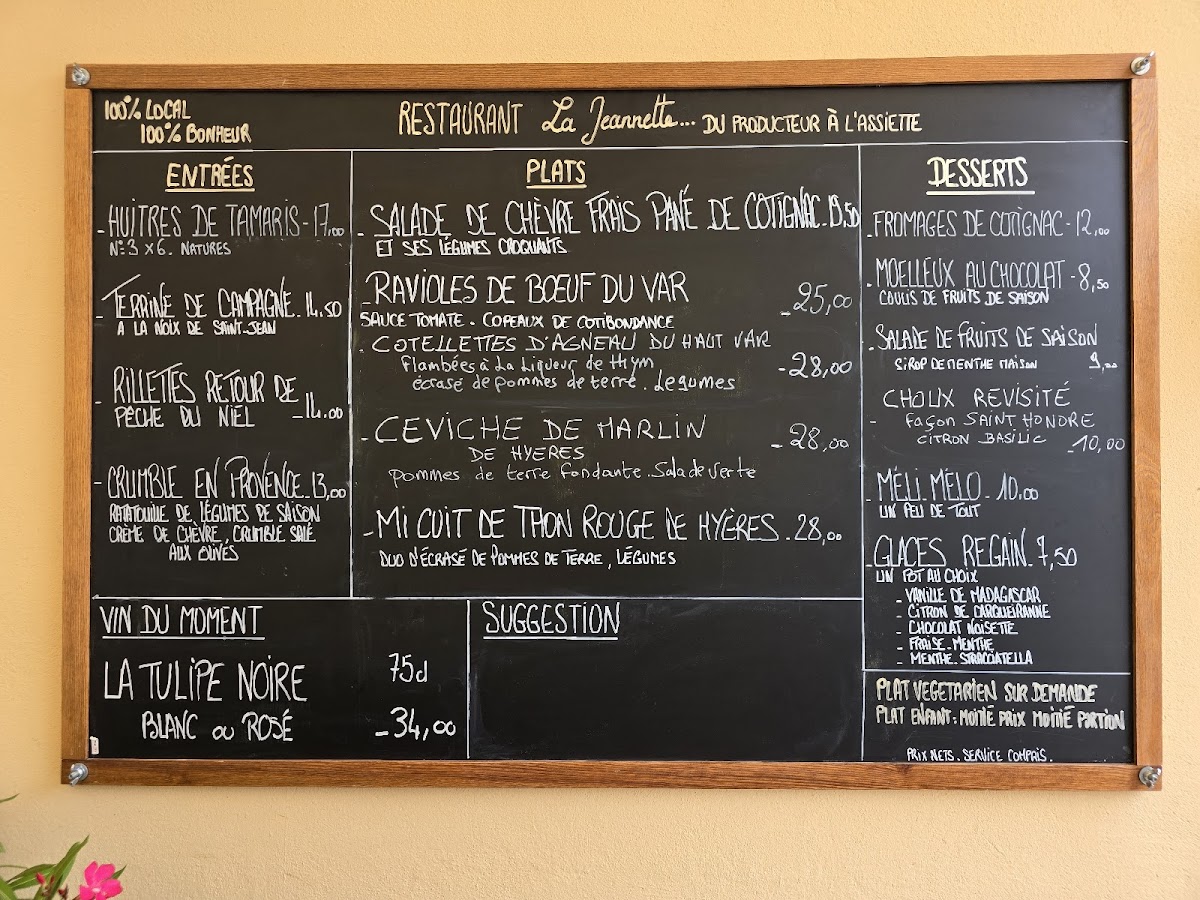 100% LOCAL
100% BONHEUR
RESTAURANT La Jeannette... DU PRODUCTEUR À L'ASSIETTE
ENTRÉES
- HUITRES DE TAMARIS - 17,00
N°3 x 6 . NATURES
- TERRINE DE CAMPAGNE . 14.50
A LA NOIX DE SAINT-JEAN
- RILLETTES RETOUR DE
PÊCHE DU NIEL - 14.00
- CRUMBLE EN PROVENCE . 13,00
RATATOUILLE DE LÉGUMES DE SAISON
CRÈME DE CHÈVRE, CRUMBLE SALÉ
AUX OLIVES
PLATS
- SALADE DE CHÈVRE FRAIS PANÉ DE COTIGNAC . 19,50
ET SES LÉGUMES CROQUANTS
- RAVIOLES DE BOEUF DU VAR - 25,00
SAUCE TOMATE - COPEAUX DE COTIBONDANCE
- COTELLETTES D'AGNEAU DU HAUT VAR
Flambées à La Liqueur de Thym - 28,00
écrasé de pommes de terre . Légumes
- CEVICHE DE MARLIN - 28,00
DE HYERES
pommes de terre fondante . Salade verte
- MI CUIT DE THON ROUGE DE HYÈRES . 28,00
DUO D'ÉCRASÉ DE POMMES DE TERRE, LÉGUMES
DESSERTS
- FROMAGES DE COTIGNAC - 12,00
- MOELLEUX AU CHOCOLAT - 8,50
COULIS DE FRUITS DE SAISON
- SALADE DE FRUITS DE SAISON
SIROP DE MENTHE MAISON 9,00
CHOUX REVISITÉ
- Façon SAINT HONORE
CITRON BASILIC - 10,00
- MÉLI MÉLO - 10.00
UN PEU DE TOUT
- GLACES REGAIN . 7,50
UN POT AU CHOIX
- VANILLE DE MADAGASCAR
- CITRON DE CARQUEIRANNE
- CHOCOLAT NOISETTE
- FRAISE-MENTHE
- MENTHE-STRACCIATELLA
VIN DU MOMENT
LA TULIPE NOIRE 75cl
BLANC OU ROSÉ - 34,00
SUGGESTION
PLAT VEGETARIEN SUR DEMANDE
PLAT ENFANT : MOITIÉ PRIX MOITIÉ PORTION
PRIX NETS . SERVICE COMPRIS .